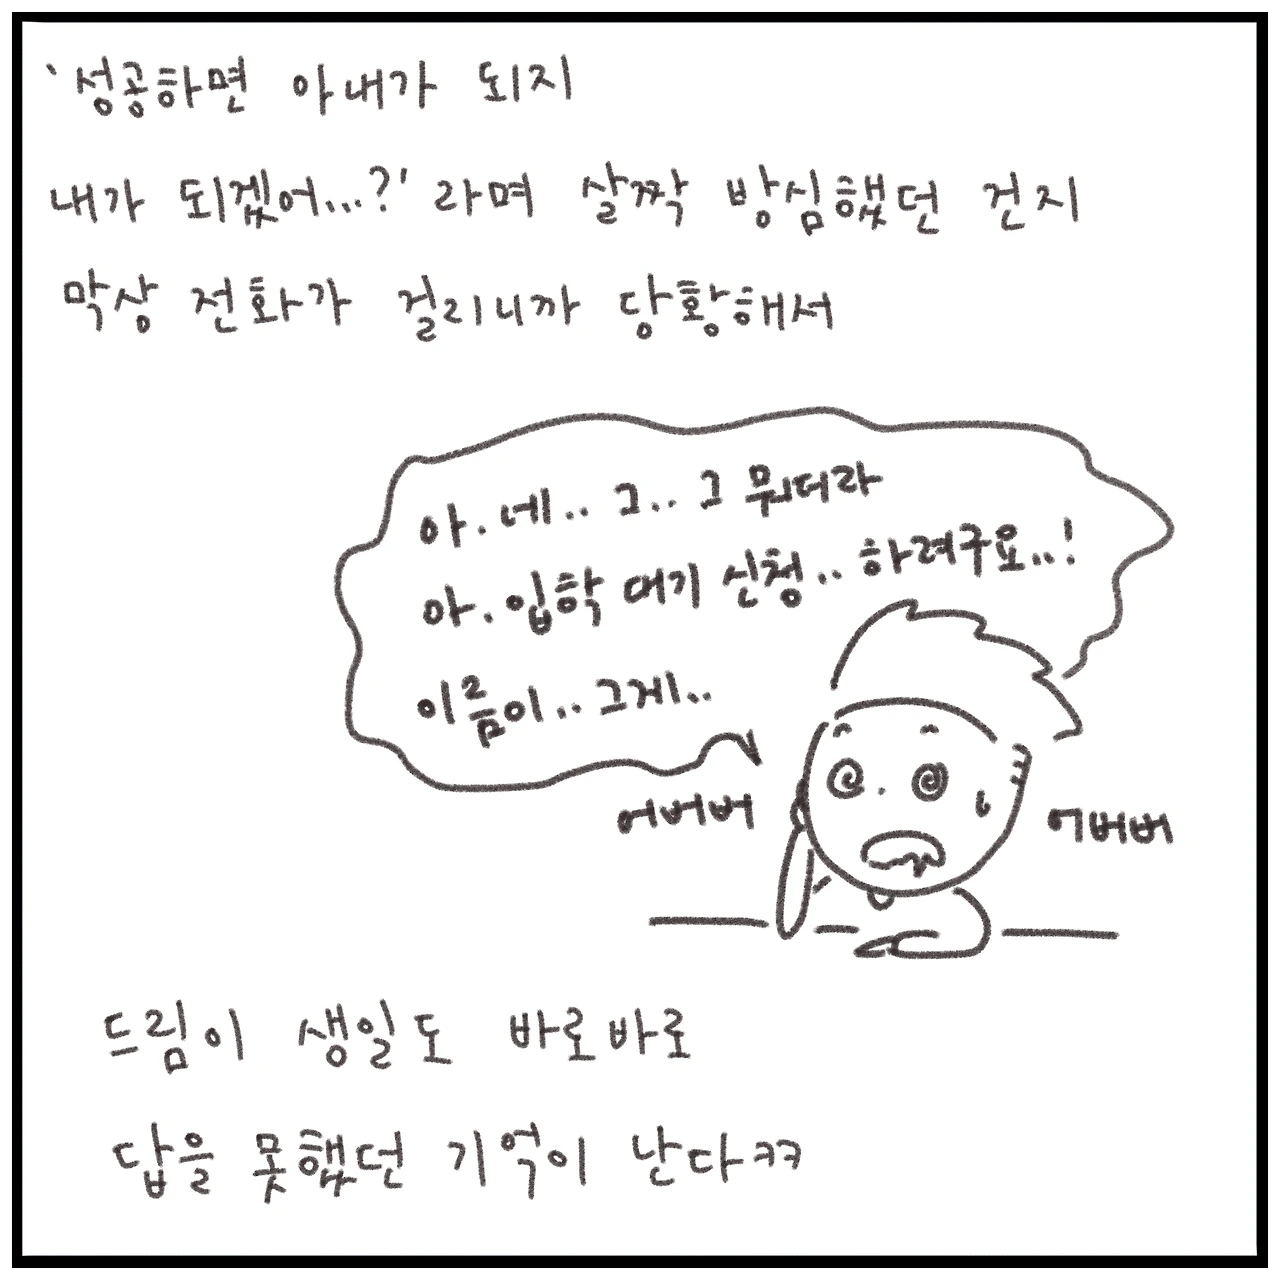 '성공하면 아내가 되지
내가 되겠어...?' 라며 살짝 방심했던 건지
막상 전화가 걸리니까 당황해서
아. 네.. 그.. 그 뭐더라
아. 입학 대기 신청.. 하려구요..!
이름이.. 그게..
어버버
어버버
드림이 생일도 바로바로
답을 못했던 기억이 난다ㅋㅋ